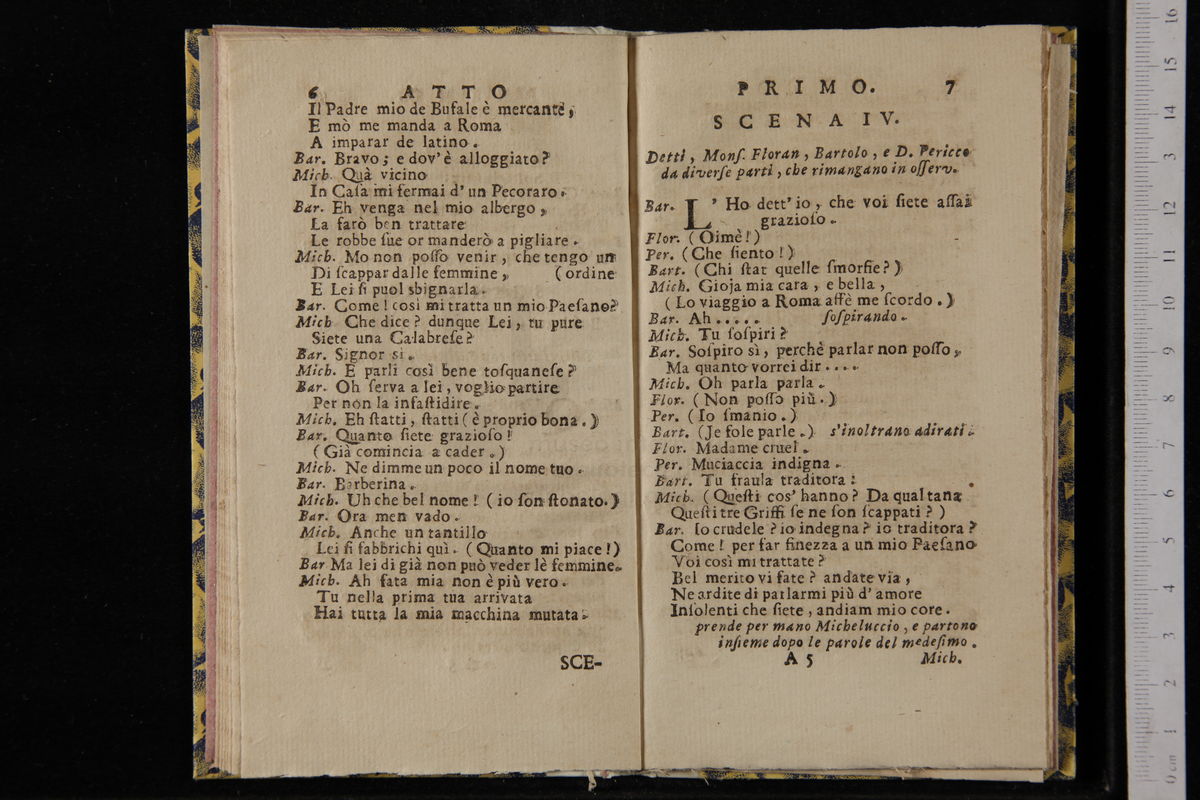 6 ATTO
Il Padre mio de Bufale è mercante,
E mò me manda a Roma
A imparar de latino.
Bar. Bravo; e dov'è alloggiato?
Mich. Quà vicino
In Caſa mi fermai d'un Pecoraro.
Bar. Eh venga nel mio albergo,
La farò ben trattare
Le robbe ſue or manderò a pigliare.
Mich. Mo non poſſo venir, che tengo un
Di ſcappar dalle femmine, (ordine
E Lei ſi puol sbignarla.
Bar. Come! così mi tratta un mio Paeſano?
Mich Che dice? dunque Lei, tu pure
Siete una Calabreſe?
Bar. Signor si.
Mich. E parli così bene toſquaneſe?
Bar. Oh ſerva a lei, voglio partire
Per non la infaſtidire.
Mich. Eh ſtatti, ſtatti (è proprio bona.)
Bar. Quanto ſiete grazioſo!
(Già comincia a cader.)
Mich. Ne dimme un poco il nome tuo.
Bar. Barberina.
Mich. Uh che bel nome! (io ſon ſtonato.)
Bar. Ora men vado.
Mich. Anche un tantillo
Lei ſi fabbrichi quì. (Quanto mi piace!)
Bar Ma lei di già non può veder lè femmine.
Mich. Ah fata mia non è più vero.
Tu nella prima tua arrivata
Hai tutta la mia macchina mutata.
SCE-
PRIMO. 7
SCENA IV.
Detti, Monſ. Floran, Bartolo, e D. Pericco
da diverſe parti, che rimangano in oſſerv.
Bar. L' Ho dett'io, che voi ſiete aſſai
grazioſo.
Flor. (Oimè!)
Per. (Che ſiento!)
Bart. (Chi ſtar quelle ſmorfie?)
Mich. Gioja mia cara, e bella,
(Lo viaggio a Roma affè me ſcordo.)
Bar. Ah..... ſoſpirando.
Mich. Tu ſoſpiri?
Bar. Soſpiro sì, perchè parlar non poſſo,
Ma quanto vorrei dir....
Mich. Oh parla parla.
Flor. (Non poſſo più.)
Per. (Io ſmanio.)
Bart. (Je fole parle.) s'inoltrano adirati.
Flor. Madame cruel.
Per. Muciaccia indigna.
Bart. Tu fraula traditora:
Mich. (Queſti cos' hanno? Da qual tana
Queſti tre Griffi ſe ne ſon ſcappati?)
Bar. Io crudele? io indegna? io traditora?
Come! per far finezza a un mio Paeſano
Voi così mi trattate?
Bel merito vi fate? andate via,
Ne ardite di parlarmi più d'amore
Inſolenti che ſiete, andiam mio core.
prende per mano Micheluccio, e partono
inſieme dopo le parole del medeſimo.
A 5 Mich.
0 cm 1 2 3 4 5 6 7 8 9 10 11 12 3 14 15 16